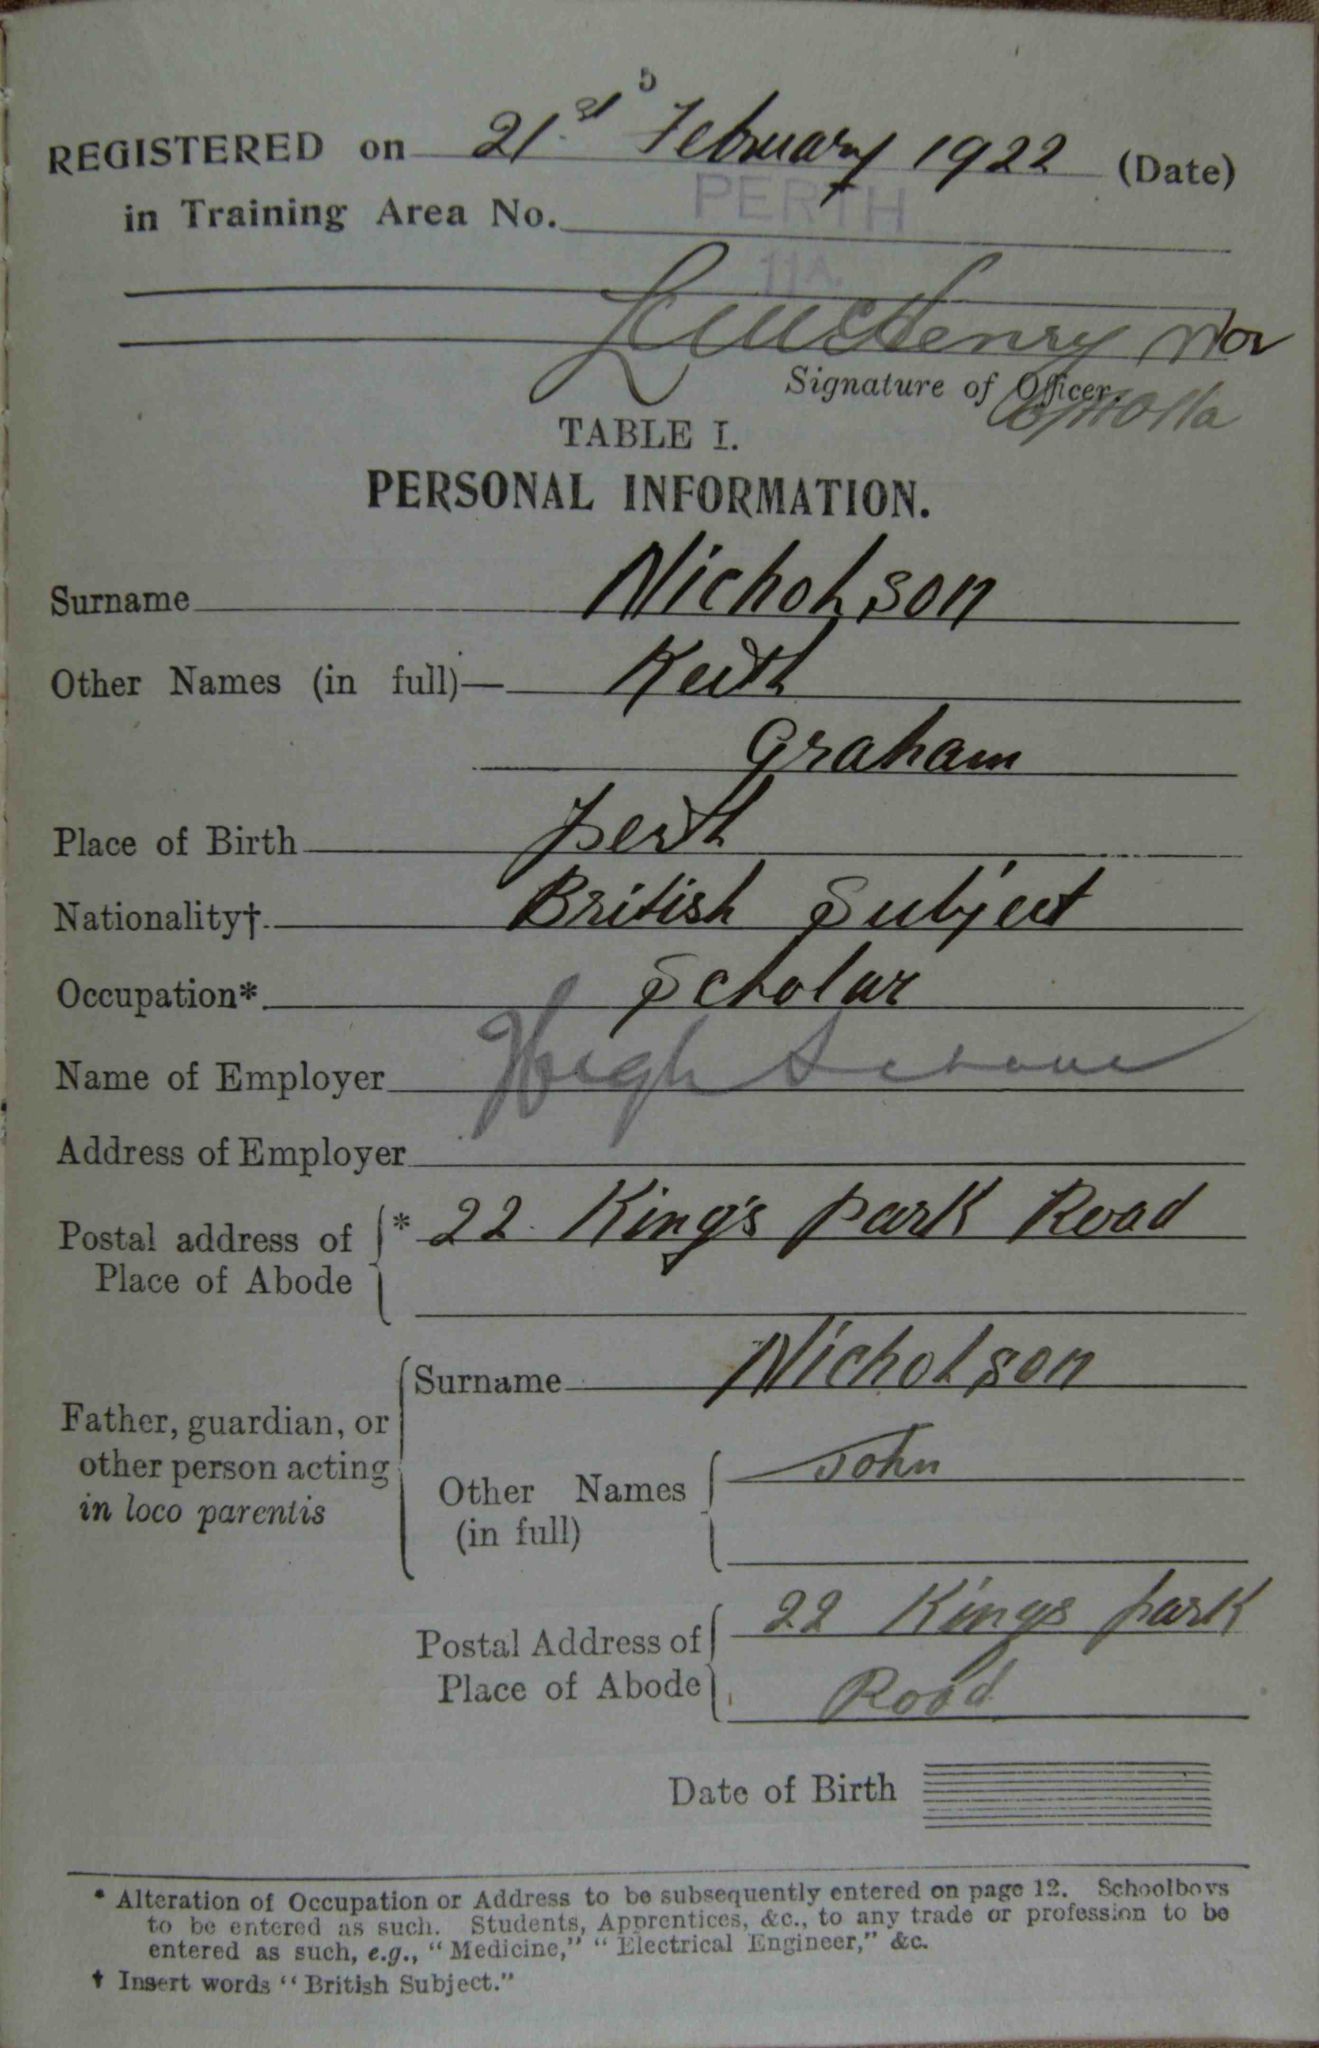 5
REGISTERED on 21st February 1922 (Date)
in Training Area No. PERTH
11A.
Signature of Officer.
TABLE I.
PERSONAL INFORMATION.
Surname Nicholson
Other Names (in full)— Keith
Graham
Place of Birth Perth
Nationality†. British Subject
Occupation*. Scholar
Name of Employer High School
Address of Employer
Postal address of Place of Abode * 22 King's Park Road
Father, guardian, or other person acting in loco parentis
Surname Nicholson
Other Names (in full) John
Postal Address of Place of Abode 22 Kings Park
Road
Date of Birth
* Alteration of Occupation or Address to be subsequently entered on page 12. Schoolboys
to be entered as such. Students, Apprentices, &c., to any trade or profession to be
entered as such, e.g., "Medicine," "Electrical Engineer," &c.
† Insert words "British Subject."